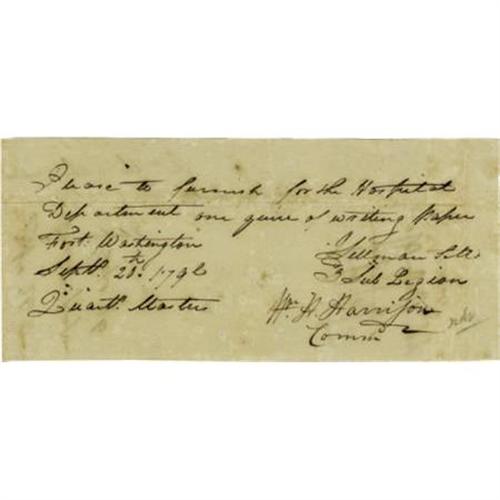 Please to furnish for the Hospital
Department one quire of writing Paper
Fort Washington
Septr. 28th. 1796
Quartr. Master
Sellman S. M.
3 Sub Legion
Wm. H. Harrison
Comm